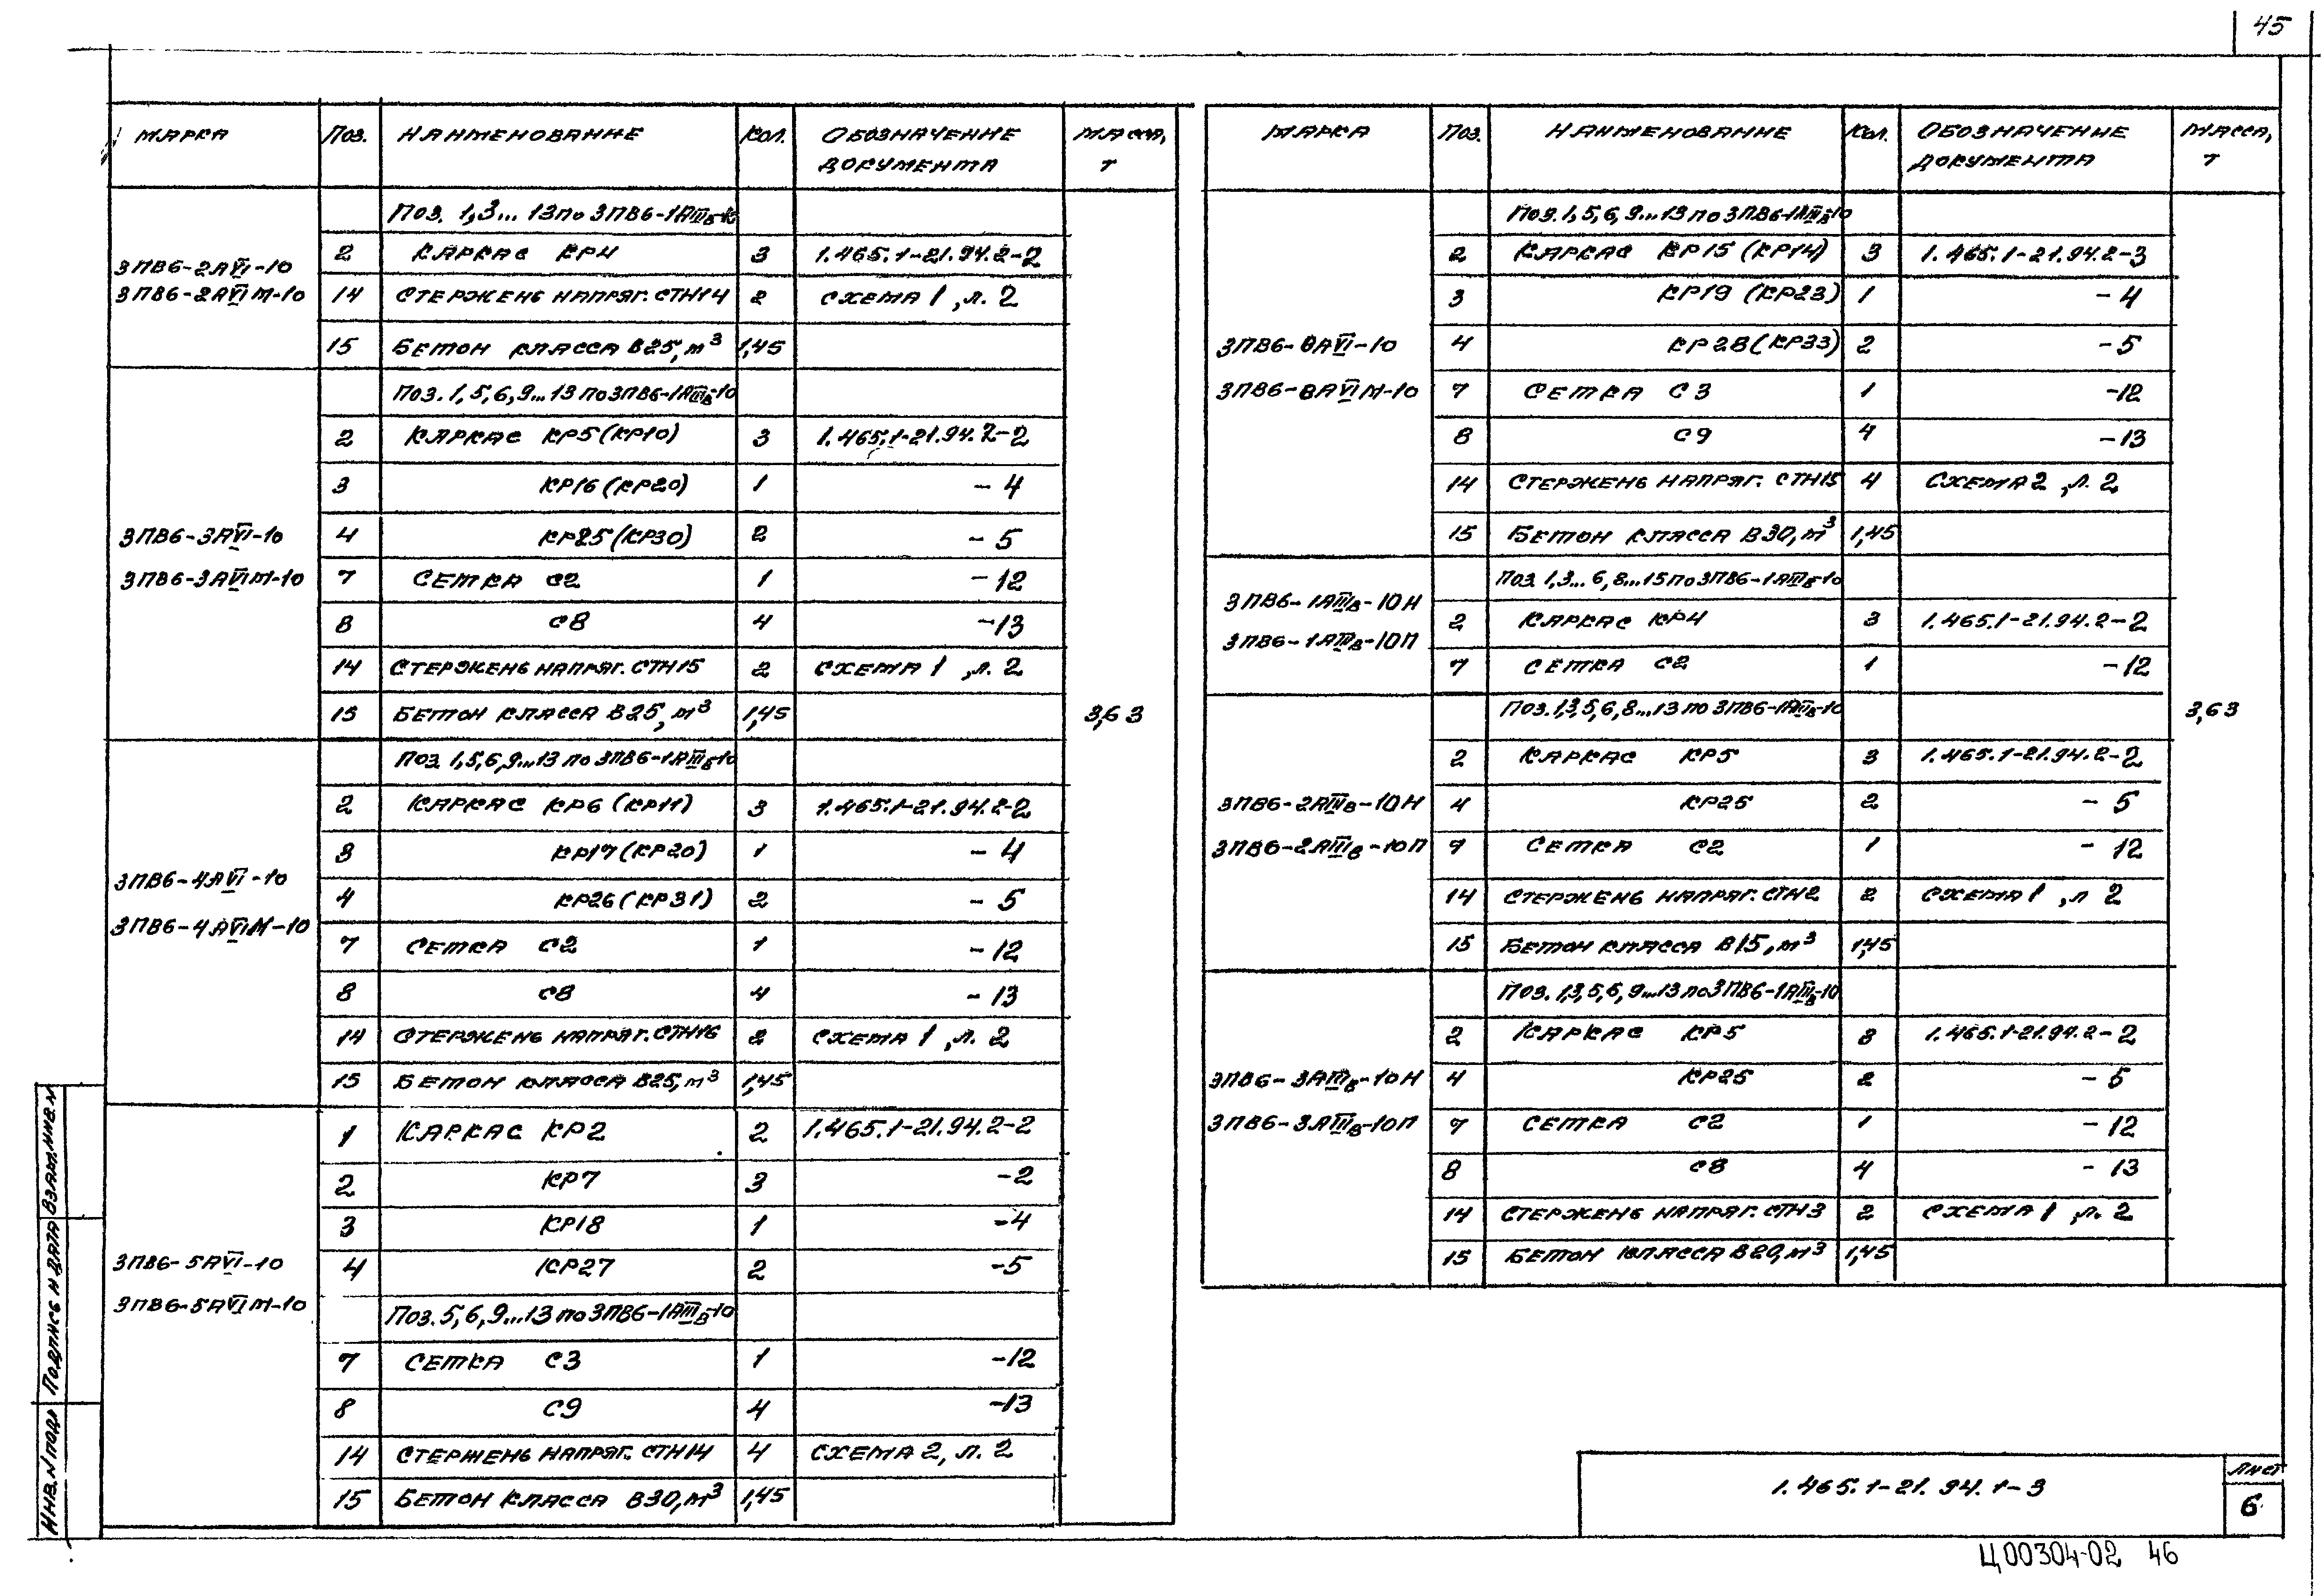 45
МАРКА Поз. НАИМЕНОВАНИЕ Кол. ОБОЗНАЧЕНИЕ ДОКУМЕНТА МАССА, Т
Поз. 1,3... 13 по 3ПВ6-1АIIIв-10
3ПВ6-2АVI-10
3ПВ6-2АVIМ-10
2 КАРКАС КР4 3 1.465.1-21.94.2-2
14 СТЕРЖЕНЬ НАПРЯГ. СТН14 2 СХЕМА 1, л. 2
15 БЕТОН КЛАССА В25, м³ 1,45
Поз. 1,5,6,9...13 по 3ПВ6-1АIIIв-10
3ПВ6-3АVI-10
3ПВ6-3АVIМ-10
2 КАРКАС КР5 (КР10) 3 1.465.1-21.94.2-2
3 КР16 (КР20) 1 -4
4 КР25 (КР30) 2 -5
7 СЕТКА С2 1 -12
8 С8 4 -13
14 СТЕРЖЕНЬ НАПРЯГ. СТН15 2 СХЕМА 1, л. 2
15 БЕТОН КЛАССА В25, м³ 1,45
3,63
Поз. 1,5,6,9...13 по 3ПВ6-1АIIIв-10
3ПВ6-4АVI-10
3ПВ6-4АVIМ-10
2 КАРКАС КР6 (КР11) 3 1.465.1-21.94.2-2
3 КР17 (КР20) 1 -4
4 КР26 (КР31) 2 -5
7 СЕТКА С2 1 -12
8 С8 4 -13
14 СТЕРЖЕНЬ НАПРЯГ. СТН16 2 СХЕМА 1, л. 2
15 БЕТОН КЛАССА В25, м³ 1,45
3ПВ6-5АVI-10
3ПВ6-5АVIМ-10
1 КАРКАС КР2 2 1.465.1-21.94.2-2
2 КР7 3 -2
3 КР18 1 -4
4 КР27 2 -5
Поз. 5,6,9...13 по 3ПВ6-1АIIIв-10
7 СЕТКА С3 1 -12
8 С9 4 -13
14 СТЕРЖЕНЬ НАПРЯГ. СТН14 4 СХЕМА 2, л. 2
15 БЕТОН КЛАССА В30, м³ 1,45
МАРКА Поз. НАИМЕНОВАНИЕ Кол. ОБОЗНАЧЕНИЕ ДОКУМЕНТА МАССА, Т
Поз. 1,5,6,9...13 по 3ПВ6-1АIIIв-10
3ПВ6-8АVI-10
3ПВ6-8АVIМ-10
2 КАРКАС КР15 (КР14) 3 1.465.1-21.94.2-3
3 КР19 (КР23) 1 -4
4 КР28 (КР33) 2 -5
7 СЕТКА С3 1 -12
8 С9 4 -13
14 СТЕРЖЕНЬ НАПРЯГ. СТН15 4 СХЕМА 2, л. 2
15 БЕТОН КЛАССА В30, м³ 1,45
Поз. 1,3...6,8...15 по 3ПВ6-1АIIIв-10
3ПВ6-1АIIIв-10Н
3ПВ6-1АIIIв-10П
2 КАРКАС КР4 3 1.465.1-21.94.2-2
7 СЕТКА С2 1 -12
Поз. 1,3,5,6,8...13 по 3ПВ6-1АIIIв-10
3,63
3ПВ6-2АIIIв-10Н
3ПВ6-2АIIIв-10П
2 КАРКАС КР5 3 1.465.1-21.94.2-2
4 КР25 2 -5
7 СЕТКА С2 1 -12
14 СТЕРЖЕНЬ НАПРЯГ. СТН2 2 СХЕМА 1, л 2
15 БЕТОН КЛАССА В15, м³ 1,45
Поз. 1,3,5,6,9...13 по 3ПВ6-1АIIIв-10
3ПВ6-3АIIIв-10Н
3ПВ6-3АIIIв-10П
2 КАРКАС КР5 3 1.465.1-21.94.2-2
4 КР25 2 -5
7 СЕТКА С2 1 -12
8 С8 4 -13
14 СТЕРЖЕНЬ НАПРЯГ. СТН3 2 СХЕМА 1, л. 2
15 БЕТОН КЛАССА В20, м³ 1,45
ИНВ. N ПОДЛ ПОДПИСЬ И ДАТА ВЗАМ. ИНВ. N
1.465.1-21.94.1-3
ЛИСТ
6
Ц00304-02 46